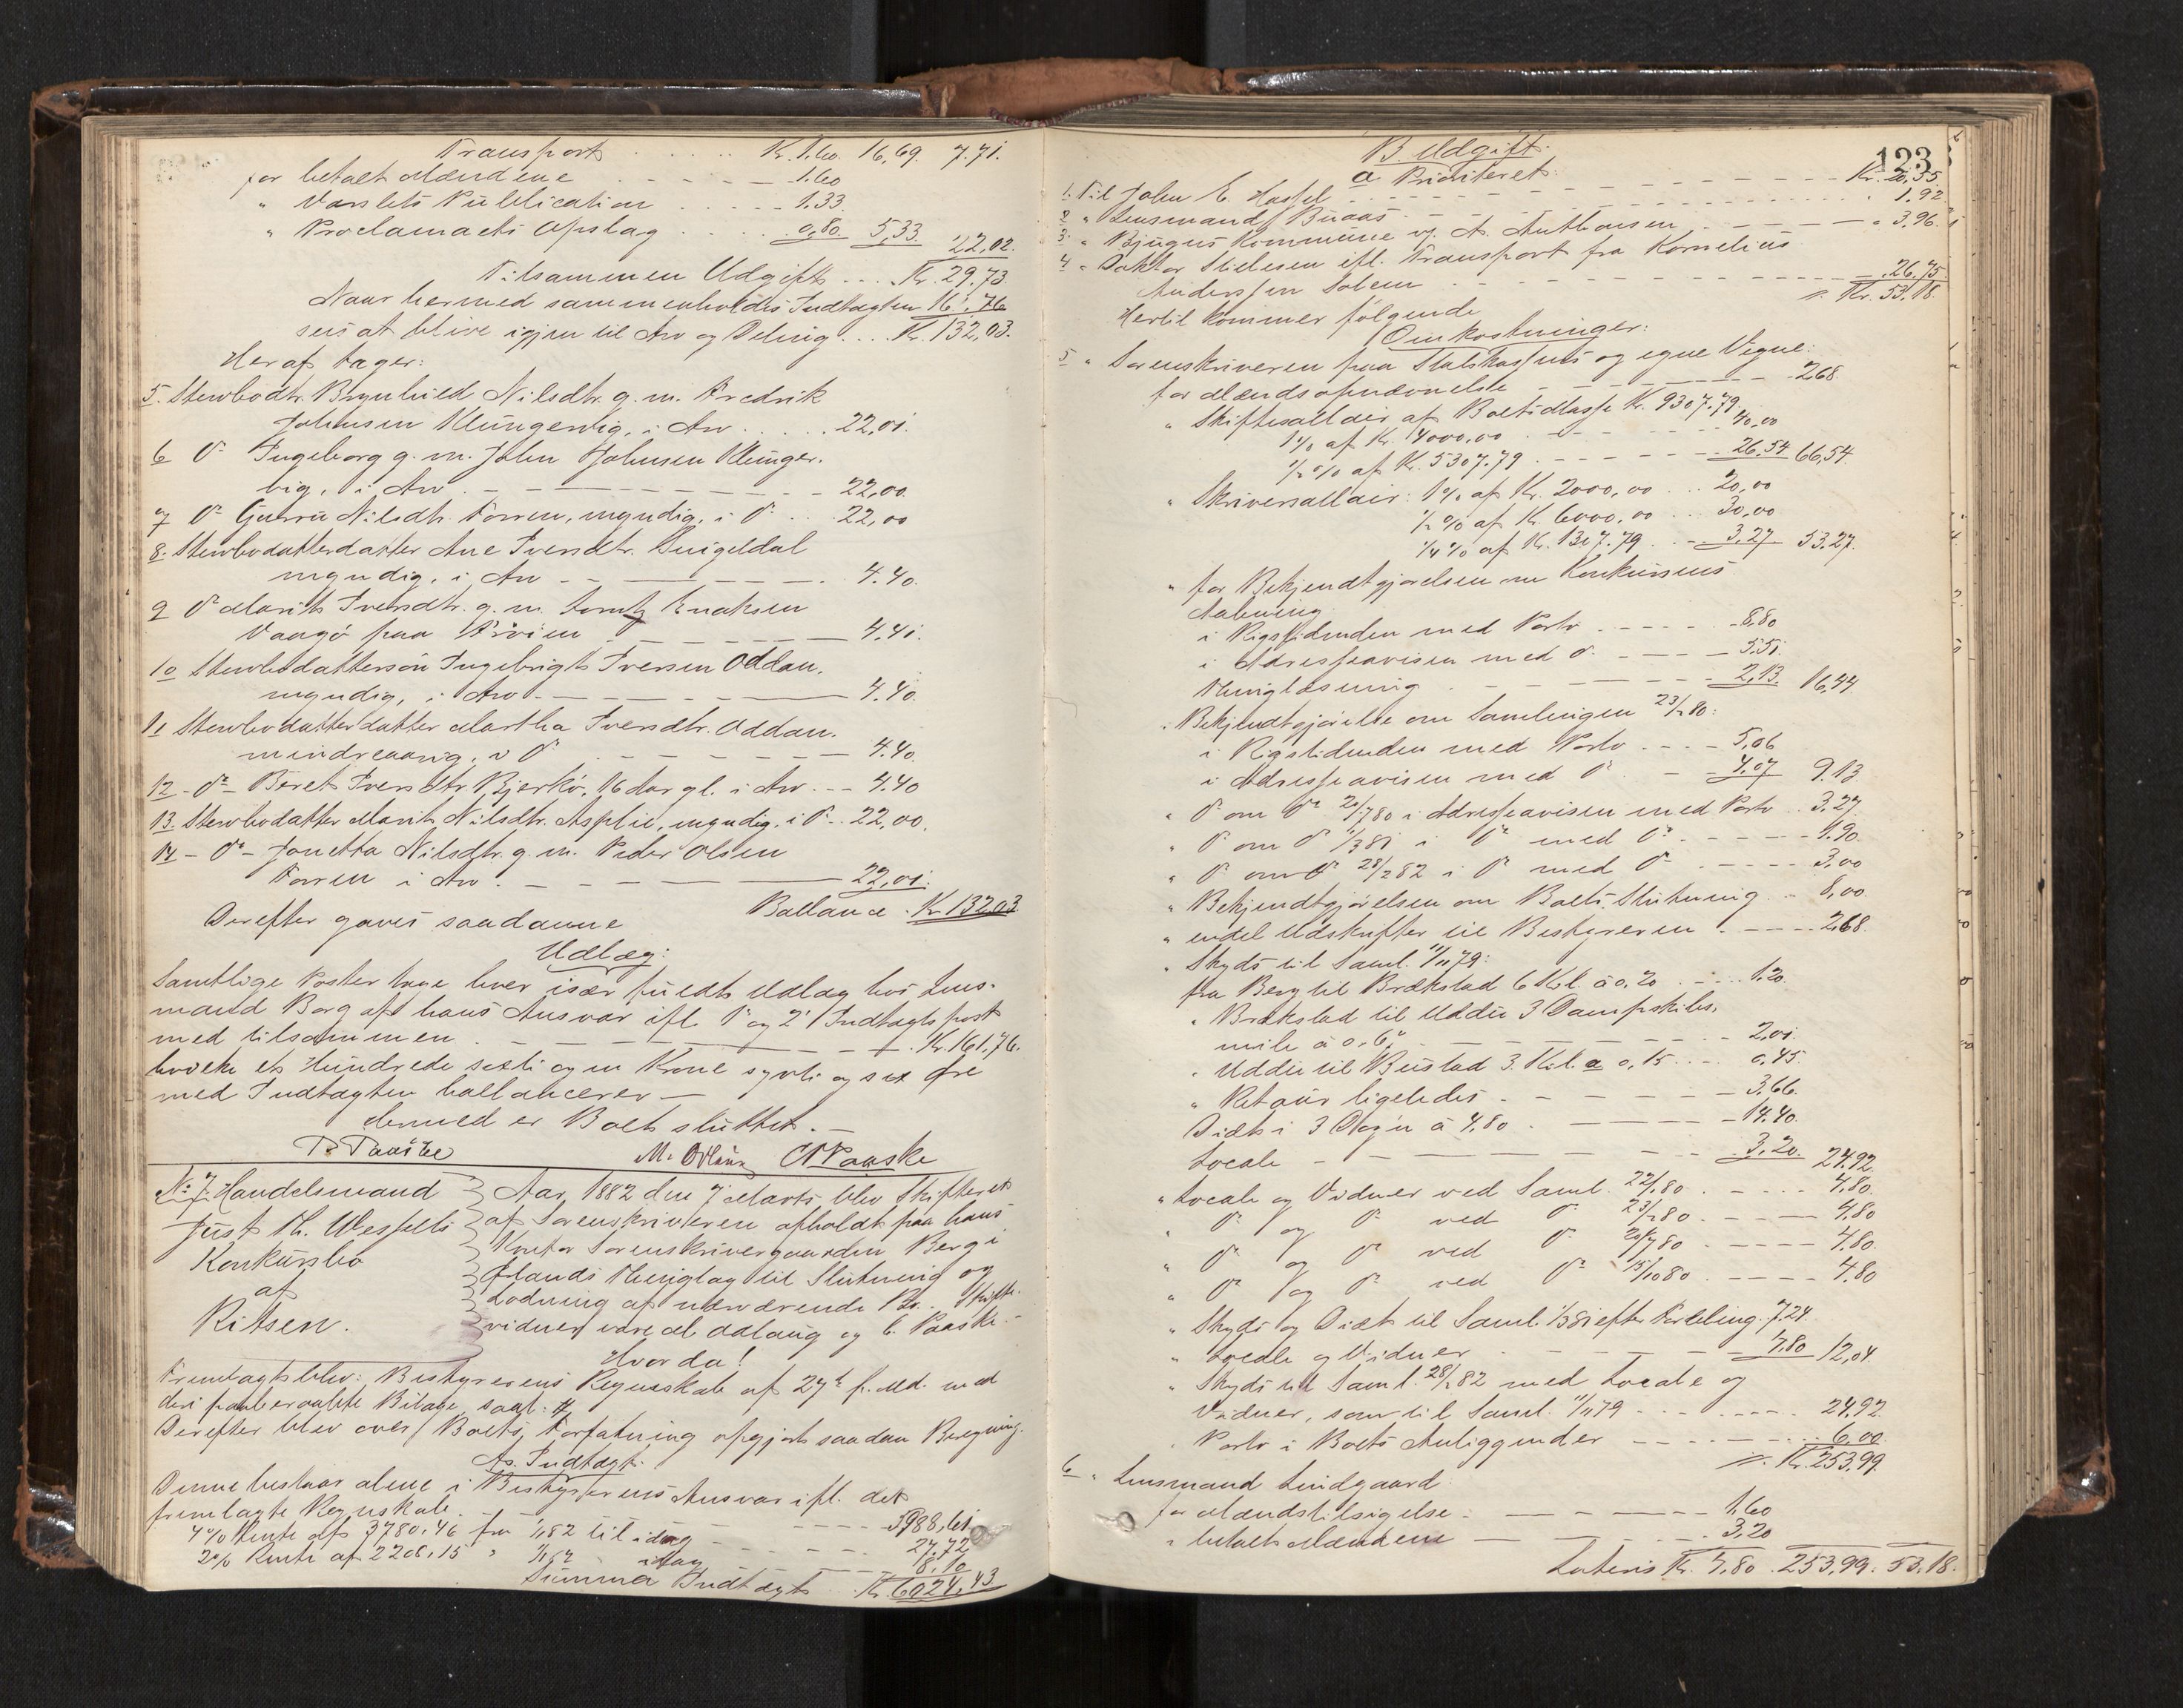 Transport . . . . . Kr. 1.60. 16,69. 7.71.
for betalt Mændene . . . . . 1.60
" Varslets Publication . . . . . 1.33.
" Proclamaets Opslag . . . . 0,80. 5,33. 22,02.
Tilsammen Udgift . . . Kr. 29,73
Naar hermed sammenholdes Indtægten 161,76
sees at blive igjen til Arv og Deling . . . Kr. 132,03.
Heraf tager:
5. Stervbodtr. Brynhild Nilsdtr. g. m. Fredrik
Johnsen Klungervig, i Arv . . . . . 22,01.
6 do Ingeborg g. m. John Johnsen Klunger-
vig, i Arv . - - - - - 22,00.
7 do Gurru Nilsdtr. Forren, myndig, i do . . 22,00
8. Stervbodatterdatter Ane Iversdtr.
myndig, i Arv - - - - 4.40.
9 do Marit Iversdtr. g. m. Knudsen
Vaagø paa - - - - 4,41.
10 Stervbodattersøn Ingebrigt Iversen Oddan,
myndig, i Arv - - - - 4.40.
11 Stervbodatterdatter Martha Iversdtr. Oddan,
mindreaarig, i do - - - - 4.40.
12 - do - Beret Iversdtr. Bjerkø, 16 Aar gl. i Arv - - - 4.40
13. Stervbodatter Marit Nilsdtr. Asplie, myndig, i do . . 22,00.
14 - do - Jonetta Nilsdtr. g. m. Peder Olsen
Forren i Arv . - - - - 22,01.
Ballance . Kr. 132,03
Derefter gaves saadanne
Udlæg:
Samtlige Poster tage hver især fuldt Udlæg hos Lens-
mand Borg af hans Ansvar ifl. 1 og 2 Indtægtspost
med tilsammen - - - - Kr. 161.76.
hvilke et Hundrede sexti og en Krone sytti og sex Øre
med Indtægten ballancerer —
dermed er Boet sluttet. —
P. Paaske M. Ødlaug C Paaske
No. 7. Handelsmand
Just Th. Wessels
Konkursbo
af
Rissen.
Aar 1882 den 7 Marts blev Skifteret
af Sorenskriveren afholdt paa hans
Kontor Sorenskrivergaarden Berg i
Ørlands Thinglag til Slutning og
Lodning af nærværende Bo. Skifte-
vidner vare M. Ødlaug og C. Paaske. —
Hvorda!
Fremlagtes blev: Bestyrerens Regnskab af 27de f. Md. med
deri paaberaabte Bilage, saal: #
Derefter blev over Boets Forfatning opgjort saadan Beregning.
A. Indtægt.
Denne bestaar alene i Bestyrerens Ansvar ifl. det
fremlagte Regnskab - - - - 5988,61
4% Rente af 3780,46 fra 1/1 82 til idag - - - 27,72
2% Rente af 2208,15 " 1/1 82 " idag - - - 8,10
Summa Indtægt . Kr. 6024,43
123
B Udgift.
a Prioriteret:
1. Til John E. Hassel - - - - Kr. 20,55.
2. " Lensmand Buaas - - - - " 1,92
3. " Bjugns Kommune v. A. Anthonsen - - - " 3,96.
4 " Doktor ifl. Transport fra Kornelius
Anderssen Solem - - - - 26,75.
Kr. 53,18.
Hertil kommer følgende
Omkostninger:
5 " Sorenskriveren paa Statskassens og egne Vegne:
for Mændsopnævnelse - - - - 2,68
" Skiftesallair af Boets Masse Kr. 9307.79
1% af Kr. 4000,00 . - - - 40,00
1/2% af Kr. 5307.79 - - - - 26,54 66,54.
" Skriversallair: 1% af Kr. 2000,00 . . 20,00
1/2% af Kr. 6000,00 . . 30,00
1/4% af Kr. 1307.79 . - - 3,27 53,27.
" for Bekjendtgjørelsen om Konkursens
Aabning
i Rigstidenden med Porto - - - - 8,80
i Adresseavisen med do - - - - 5.51.
Thinglæsning - - - - 2,13. 16,44
" Bekjendtgjørelse om Samlingen 23/2 80:
i Rigstidenden med Porto . - - - 5,06
i Adresseavisen med do - 4,07 9.13
" do om do 20/7 80 i Adresseavisen med Porto . . 3,27
" do om do 1/3 81 i do med do - - - - 4.90
" do om do 28/2 82 i do med do - - - - 3,00
" Bekjendtgjørelsen om Boets Slutning . . 8,00
" endel Udskrifter til Bestyreren . - - - 2,68.
" Skyds til Saml. 11/11 79:
fra Berg til Brækstad 6 Kl. à 0,20 . . . 1.20.
" Brækstad til Uddu 3 Dampskibs-
mile à 0,67 - - - - 2,01.
" Uddu til Bustad 3 Kl. a 0,15 . . . 0,45
" Retour ligeledes . - - - 3,66.
Diæt i 3 Døgn à 4,80 . - - - 14.40.
Locale - - - - 3,20. 24,92
" Locale og Vidner ved Saml. 22/1 80 . - - - 4,80.
" do og do ved do 23/2 80 . - - - 4,80
" do og do ved do 20/7 80 - - - - 4,80.
" do og do ved do 15/10 80 . - - - 4,80
" Skyds og Diæt til Saml. 1/3 81 efter Fordeling 7.24.
" Locale og Vidner - - - - 4,80 12,04
" Skyds til Saml. 28/2 82 med Locale og
Vidner, som til Saml. 11/11 79 - - - - 24,92
" Porto i Boets Anliggender - - - - 6,00
Kr. 253,99.
6 " Lensmand Lindgaard
for Mændstilsigelse - - - - 1,60
" betalt Mændene - - - - 3,20
Lateris Kr. 4,80. 253,99. 53,18.